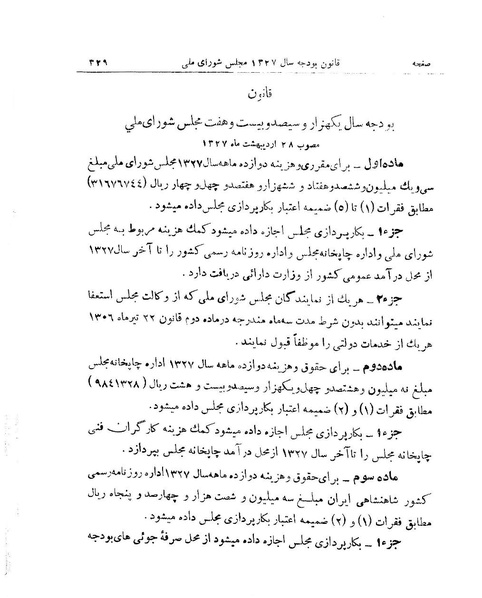 صفحه قانون بودجه سال ۱۳۲۷ مجلس شورای ملی ۳۲۹
قانون
بودجه سال یکهزار و سیصد و بیست و هفت مجلس شورای ملی
مصوب ۲۸ اردیبهشت ماه ۱۳۲۷
ماده اول ــ برای مقرری و هزینه دوازده ماهه سال ۱۳۲۷ مجلس شورای ملی مبلغ
سی و یک میلیون و ششصد و هفتاد و ششهزار و هفتصد و چهل و چهار ریال (۳۱۶۷۶۷۴۴)
مطابق فقرات (۱) تا (۵) ضمیمه اعتبار بکارپردازی مجلس داده میشود.
جزء۱ ــ بکارپردازی مجلس اجازه داده میشود کمک هزینه مربوط به مجلس
شورای ملی و اداره چاپخانه مجلس و اداره روزنامه رسمی کشور را تا آخر سال ۱۳۲۷
از محل درآمد عمومی کشور از وزارت دارائی دریافت دارد .
جزء۲ ــ هر یک از نمایندگان مجلس شورای ملی که از وکالت مجلس استعفا
نمایند میتوانند بدون شرط مدت سه ماه مندرجه در ماده دوم قانون ۲۲ تیر ماه ۱۳۰۶
هر یک از خدمات دولتی را موظفاً قبول نمایند .
ماده دوم ــ برای حقوق و هزینه دوازده ماهه سال ۱۳۲۷ اداره چاپخانه مجلس
مبلغ نه میلیون و هشتصد و چهل و یکهزار و سیصد و بیست و هشت ریال (۹۸۴۱۳۲۸)
مطابق فقرات (۱) و (۲) ضمیمه اعتبار بکارپردازی مجلس داده میشود .
جزء۱ ــ بکارپردازی مجلس اجازه داده میشود کمک هزینه کارگران فنی
چاپخانه مجلس را تا آخر سال ۱۳۲۷ از محل درآمد چاپخانه مجلس بپردازد .
ماده سوم ــ برای حقوق و هزینه دوازده ماهه سال ۱۳۲۷ اداره روزنامه رسمی
کشور شاهنشاهی ایران مبلغ سه میلیون و شصت هزار و چهارصد و پنجاه ریال
مطابق فقرات (۱) و (۲) ضمیمه اعتبار بکارپردازی مجلس داده میشود .
جزء۱ ــ بکارپردازی مجلس اجازه داده میشود از محل صرفۀ جوئی های بودجه